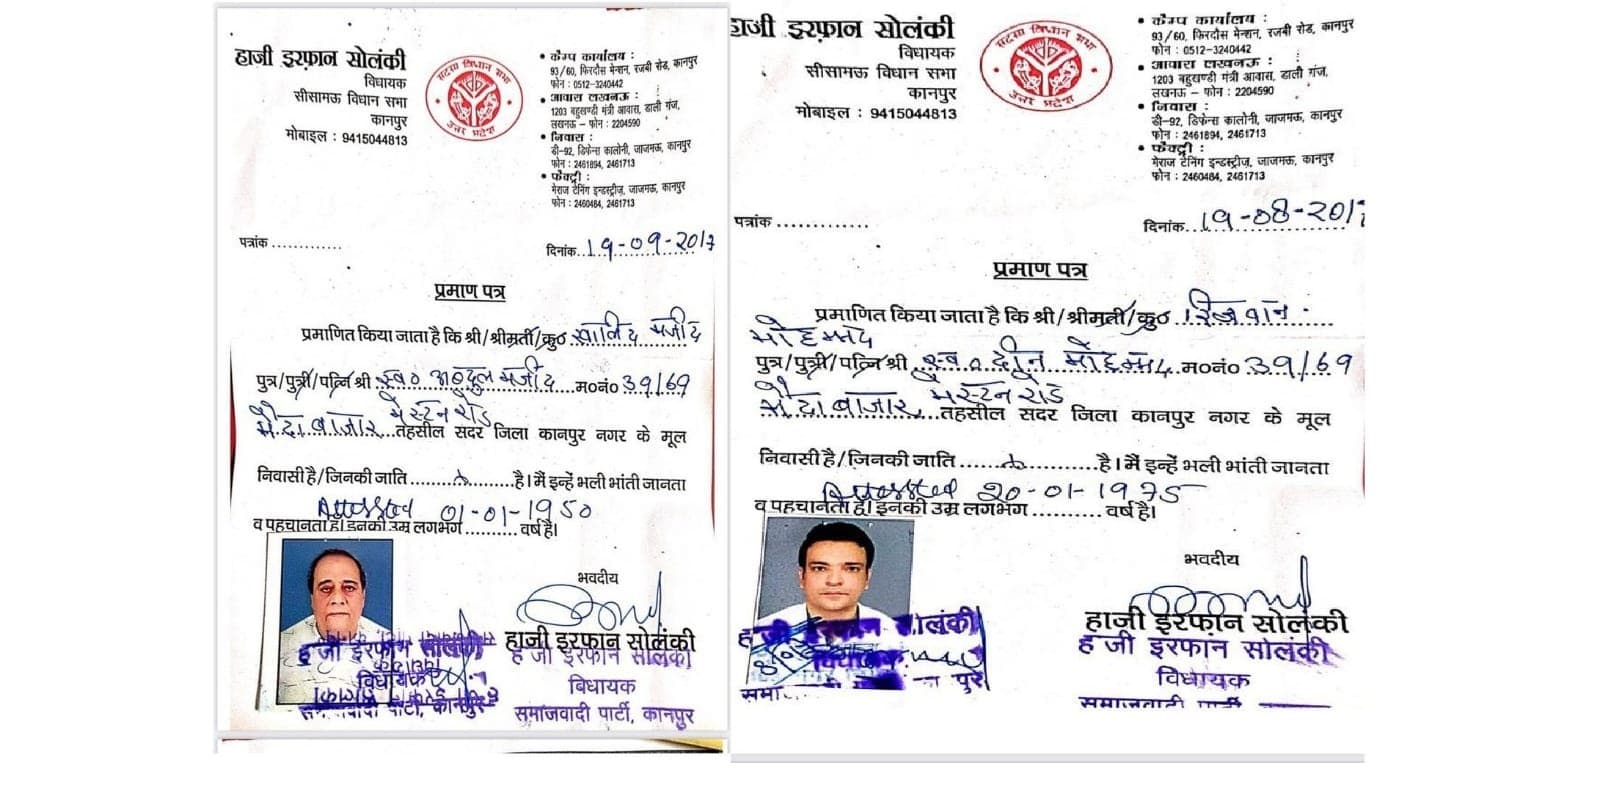 हाजी इरफ़ान सोलंकी
विधायक
सीसामऊ विधान सभा
कानपुर
मोबाइल : 9415044813
सदस्य विधान सभा
उत्तर प्रदेश
• कैम्प कार्यालय :
93/60, फिरदौस मेन्शन, रजबी रोड, कानपुर
फोन : 0512-3240442
• आवास लखनऊ :
1203 बहुखण्डी मंत्री आवास, डाली गंज,
लखनऊ – फोन : 2204590
• निवास :
डी-92, डिफेन्स कालोनी, जाजमऊ, कानपुर
फोन : 2461894, 2461713
• फैक्ट्री :
मेराज टैनिंग इन्डस्ट्रीज़, जाजमऊ, कानपुर
फोन : 2460484, 2461713
पत्रांक .............
दिनांक..19-09-2017
प्रमाण पत्र
प्रमाणित किया जाता है कि श्री/श्रीमती/कु० खालिद मजीद
पुत्र/पुत्री/पत्नि श्री स्व० अब्दुल मजीद म०नं० 39/69
मैदा बाजार, मेस्टन रोड तहसील सदर जिला कानपुर नगर के मूल
निवासी है/जिनकी जाति ................है। मैं इन्हें भली भांती जानता
Attested 01-01-1950
व पहचानता हूं। इनकी उम्र लगभग .......... वर्ष है।
भवदीय
हाजी इरफ़ान सोलंकी
हाजी इरफान सोलंकी
विधायक
समाजवादी पार्टी, कानपुर
हाजी इरफान सोलंकी
विधायक
समाजवादी पार्टी, कानपुर
हाजी इरफ़ान सोलंकी
विधायक
सीसामऊ विधान सभा
कानपुर
मोबाइल : 9415044813
सदस्य विधान सभा
उत्तर प्रदेश
• कैम्प कार्यालय :
93/60, फिरदौस मेन्शन, रजबी रोड, कानपुर
फोन : 0512-3240442
• आवास लखनऊ :
1203 बहुखण्डी मंत्री आवास, डाली गंज,
लखनऊ – फोन : 2204590
• निवास :
डी-92, डिफेन्स कालोनी, जाजमऊ, कानपुर
फोन : 2461894, 2461713
• फैक्ट्री :
मेराज टैनिंग इन्डस्ट्रीज़, जाजमऊ, कानपुर
फोन : 2460484, 2461713
पत्रांक .............
दिनांक..19-08-2017
प्रमाण पत्र
प्रमाणित किया जाता है कि श्री/श्रीमती/कु० रिजवान
मोहम्मद
पुत्र/पुत्री/पत्नि श्री स्व० दीन मोहम्मद म०नं० 39/69
मैदा बाजार, मेस्टन रोड तहसील सदर जिला कानपुर नगर के मूल
निवासी है/जिनकी जाति ................है। मैं इन्हें भली भांती जानता
Attested 20-01-1975
व पहचानता हूं। इनकी उम्र लगभग .......... वर्ष है।
भवदीय
हाजी इरफ़ान सोलंकी
हाजी इरफान सोलंकी
विधायक
समाजवादी पार्टी
सोलंकी
विधायक